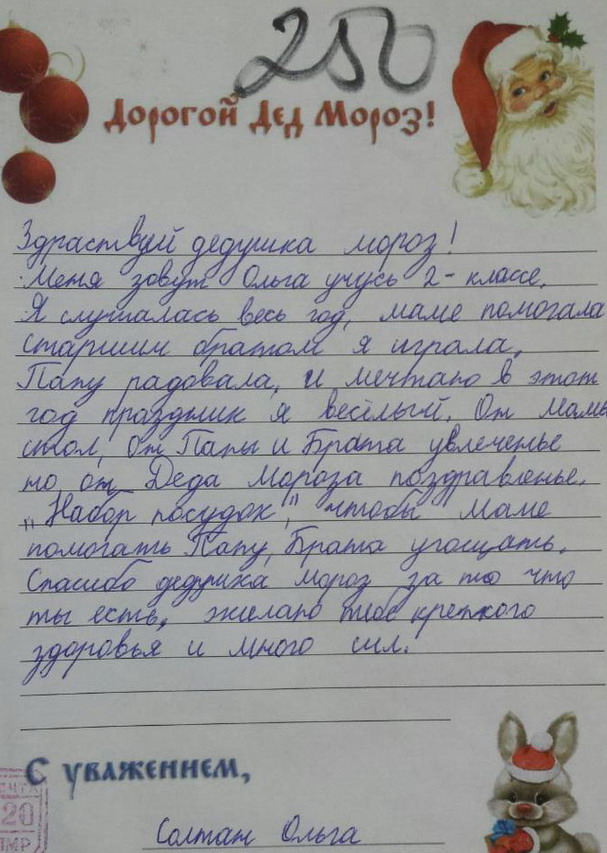 250
Дорогой Дед Мороз!
Здраствуй дедушка мороз!
Меня зовут Ольга учусь 2-классе.
Я слушалась весь год, маме помогала
старшим братом я играла.
Папу радовала, и мечтаю в этот
год праздник я весёлый. От мамы
стол, от Папы и Брата увлеченье
но от Деда Мороза поздравленье.
"Набор посудок", чтобы маме
помогать Папу, Брата угощать.
Спасибо дедушка мороз за то что
ты есть, жилаю тебе крепкого
здоровья и много сил.
С уважением,
20
ПМР
Солтан Ольга